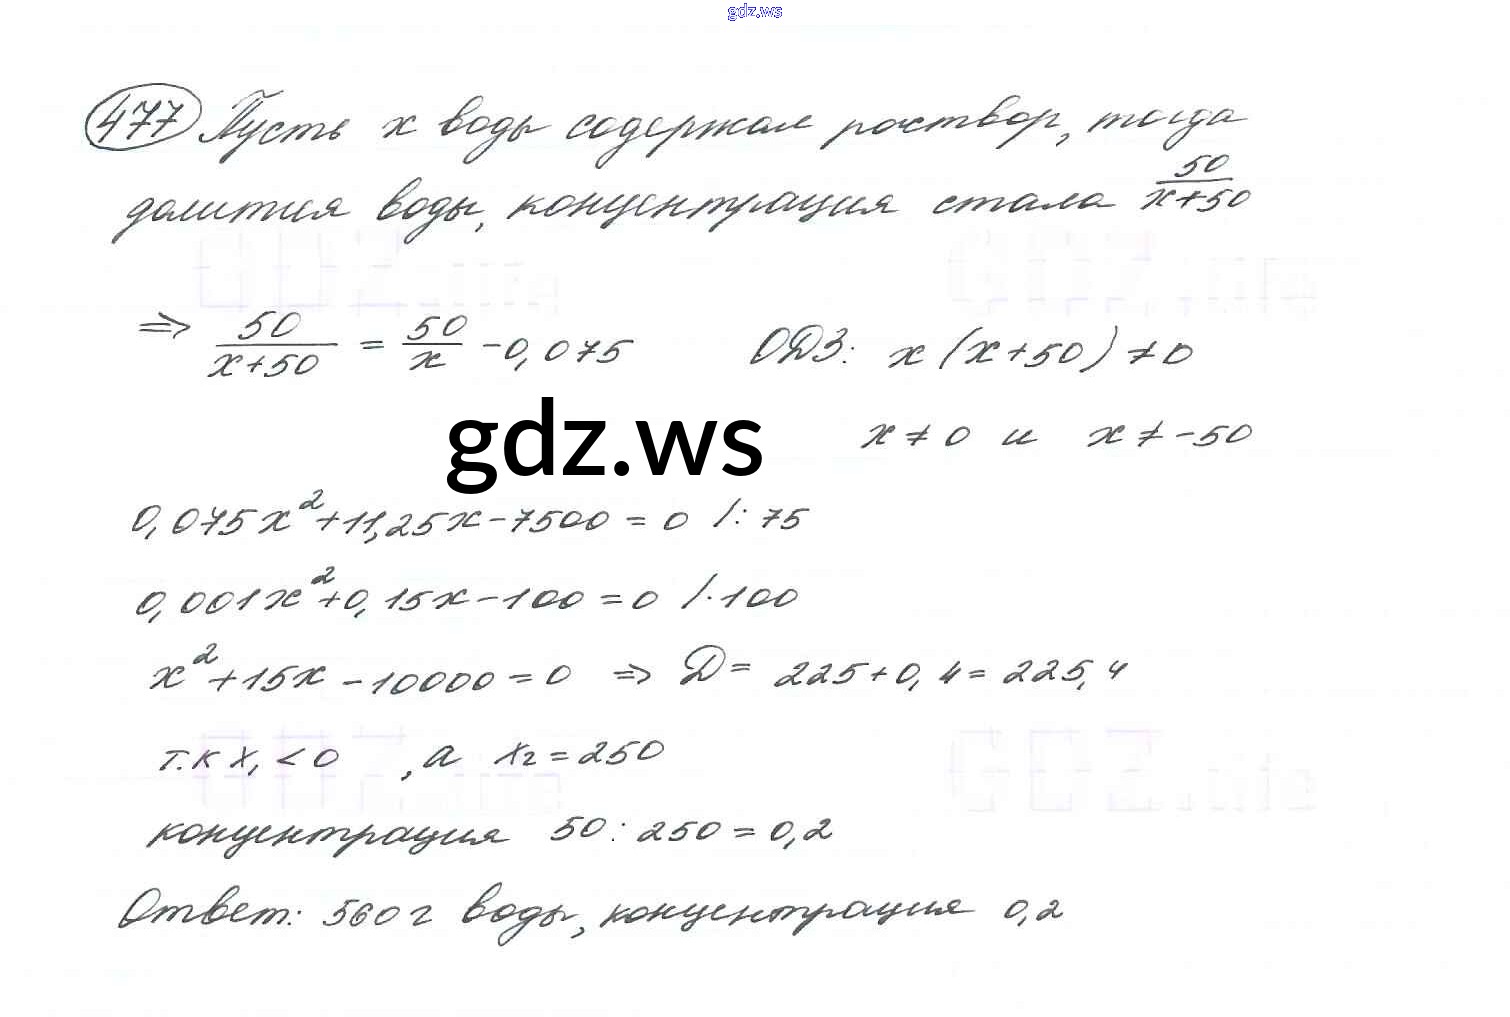 gdz.ws
477 Пусть x воды содержал раствор, тогда
долития воды, концентрация стала 50/(x+50)
GDZ.life GDZ.life
⇒ 50/(x+50) = 50/x - 0,075 ОДЗ: x(x+50) ≠ 0
gdz.ws
x ≠ 0 и x ≠ -50
0,075x²+11,25x-7500=0 /:75
0,001x²+0,15x-100=0 /·100
x²+15x-10000=0 ⇒ Д= 225+0,4=225,4
GDZ.life GDZ.life
т.к x₁<0 , а x₂=250
концентрация 50:250=0,2
Ответ: 560 г воды, концентрация 0,2